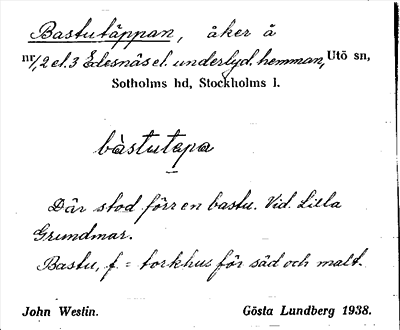 Bastutäppan, åker å
nr 1, 2 el. 3 Edesnäs el. underlyd. hemman, Utö sn,
Sotholms hd, Stockholms l.
bàstutæpa
Där stod förr en bastu. Vid Lilla
Grundmar.
Bastu, f = torkhus för säd och malt.
John Westin. Gösta Lundberg 1938.